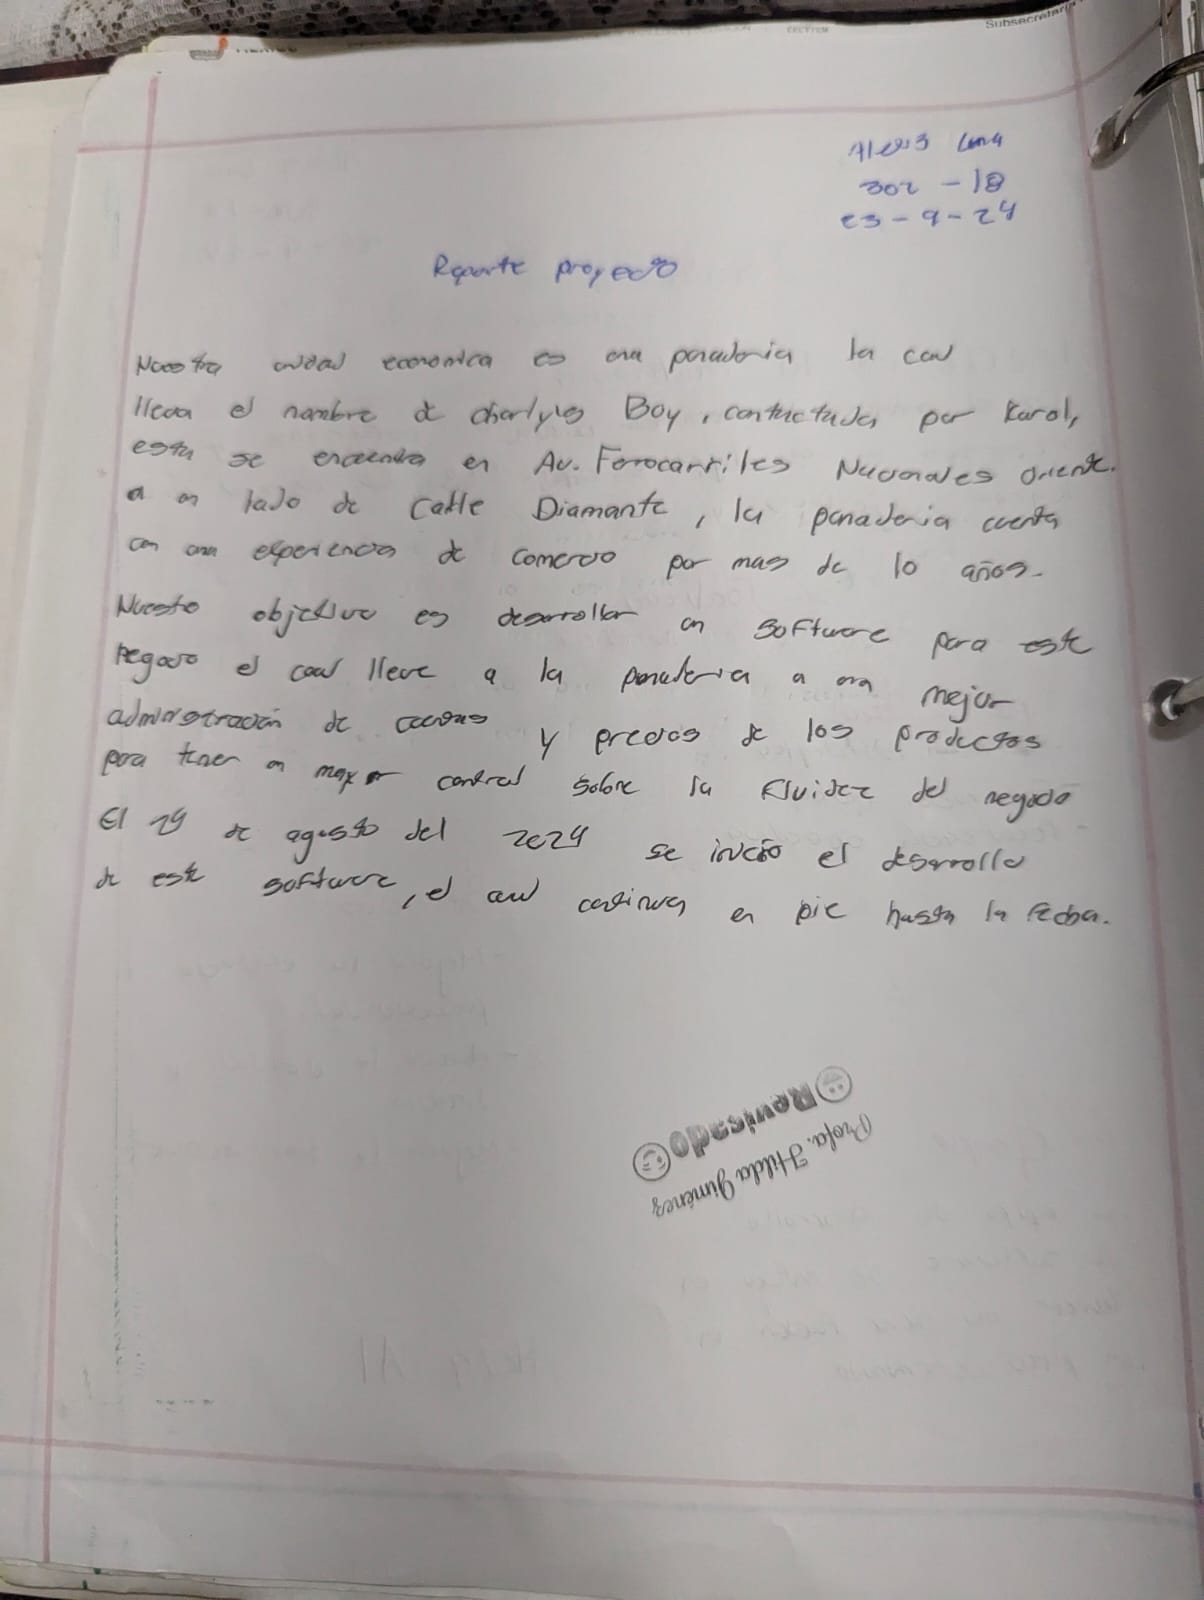 Subsecretaría
MÉXICO
Alexis Luna
302 - 18
23 - 9 - 24
Reporte proyecto
Nuestra unidad economica es una panaderia la cual
lleva el nombre de charlyls Boy, contactada por Karol,
esta se encuentra en Av. Ferrocarriles Nacionales oriente.
a un lado de Calle Diamante, la panaderia cuenta
con una experiencia de comercio por mas de 10 años.
Nuestro objetivo es desarrollar un software para este
negocio el cual lleve a la panaderia a una mejor
administración de y precios de los productos
para tener un mayor control sobre la fluidez del negocio
El 29 de agosto del 2024 se inicio el desarrollo
de este software, el cual continua en pie hasta la fecha.
Revisado
Profa. Hilda Jiménez